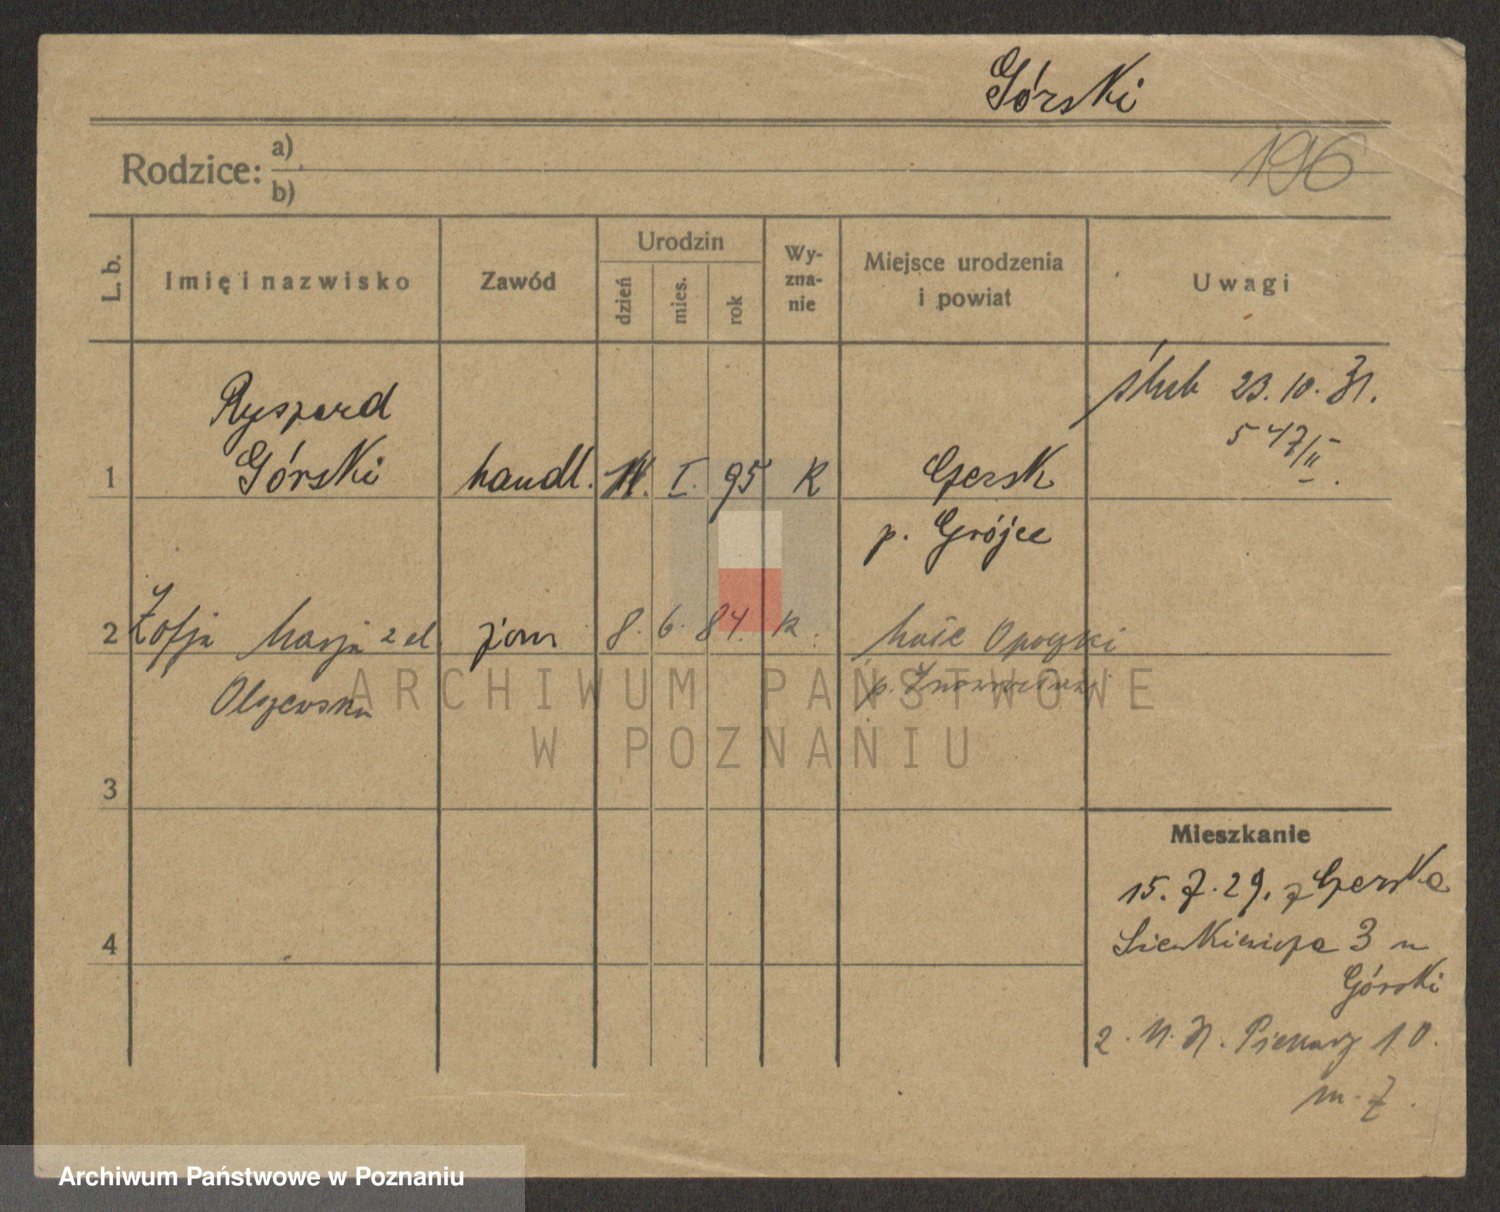 Górski
196
Rodzice: a)
b)
L. b.
Imię i nazwisko
Zawód
Urodzin
dzień
mies.
rok
Wy-
zna-
nie
Miejsce urodzenia
i powiat
Uwagi
Ryszard
1 Górski handl. I. 95 R Czersk
p. Grójec
ślub 23. 10. 31.
547/II.
2 Zofja Marja 2 el. 8. 6. 84. R.
Olszewska
3
4
Mieszkanie
15. 7. 29. z Czerska
Sienkiewicza 3 u
Górski
2. Piekary 10.
m. 7.
ARCHIWUM PAŃSTWOWE
W POZNANIU
Archiwum Państwowe w Poznaniu